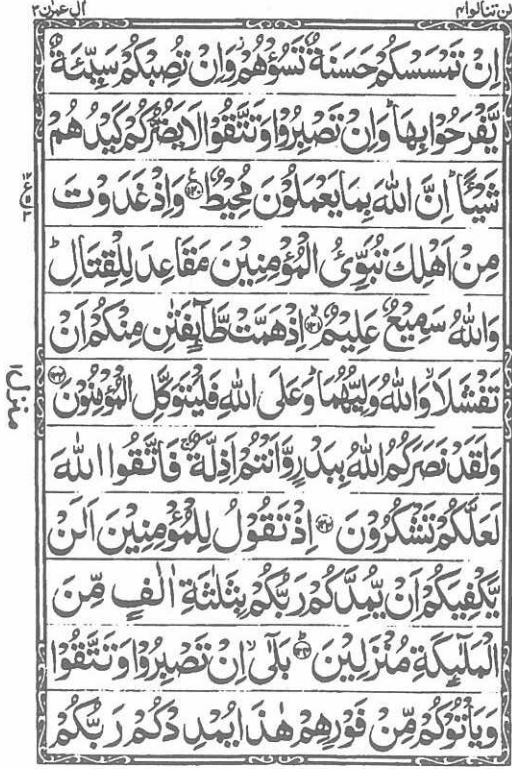 لن تنالوا ۴ ال عمرٰن ۳
اِنْ تَمْسَسْكُمْ حَسَنَةٌ تَسُؤْهُمْ وَاِنْ تُصِبْكُمْ سَيِّئَةٌ
يَّفْرَحُوْا بِهَا ؕ وَاِنْ تَصْبِرُوْا وَتَتَّقُوْا لَا يَضُرُّكُمْ كَيْدُهُمْ
شَيْـًٔا ؕ اِنَّ اللّٰهَ بِمَا يَعْمَلُوْنَ مُحِيْطٌ ﴿۱۲۰﴾ وَاِذْ غَدَوْتَ
مِنْ اَهْلِكَ تُبَوِّئُ الْمُؤْمِنِيْنَ مَقَاعِدَ لِلْقِتَالِ ؕ
وَاللّٰهُ سَمِيْعٌ عَلِيْمٌ ﴿۱۲۱﴾ اِذْ هَمَّتْ طَّآىِٕفَتٰنِ مِنْكُمْ اَنْ
تَفْشَلَا ۙ وَاللّٰهُ وَلِيُّهُمَا ؕ وَعَلَى اللّٰهِ فَلْيَتَوَكَّلِ الْمُؤْمِنُوْنَ ﴿۱۲۲﴾
وَلَقَدْ نَصَرَكُمُ اللّٰهُ بِبَدْرٍ وَّاَنْتُمْ اَذِلَّةٌ ۚ فَاتَّقُوا اللّٰهَ
لَعَلَّكُمْ تَشْكُرُوْنَ ﴿۱۲۳﴾ اِذْ تَقُوْلُ لِلْمُؤْمِنِيْنَ اَلَنْ
يَّكْفِيَكُمْ اَنْ يُّمِدَّكُمْ رَبُّكُمْ بِثَلٰثَةِ اٰلٰفٍ مِّنَ
الْمَلٰٓىِٕكَةِ مُنْزَلِيْنَ ﴿۱۲۴﴾ بَلٰٓى ۙ اِنْ تَصْبِرُوْا وَتَتَّقُوْا
وَيَاْتُوْكُمْ مِّنْ فَوْرِهِمْ هٰذَا يُمْدِدْكُمْ رَبُّكُمْ
منزل ۱